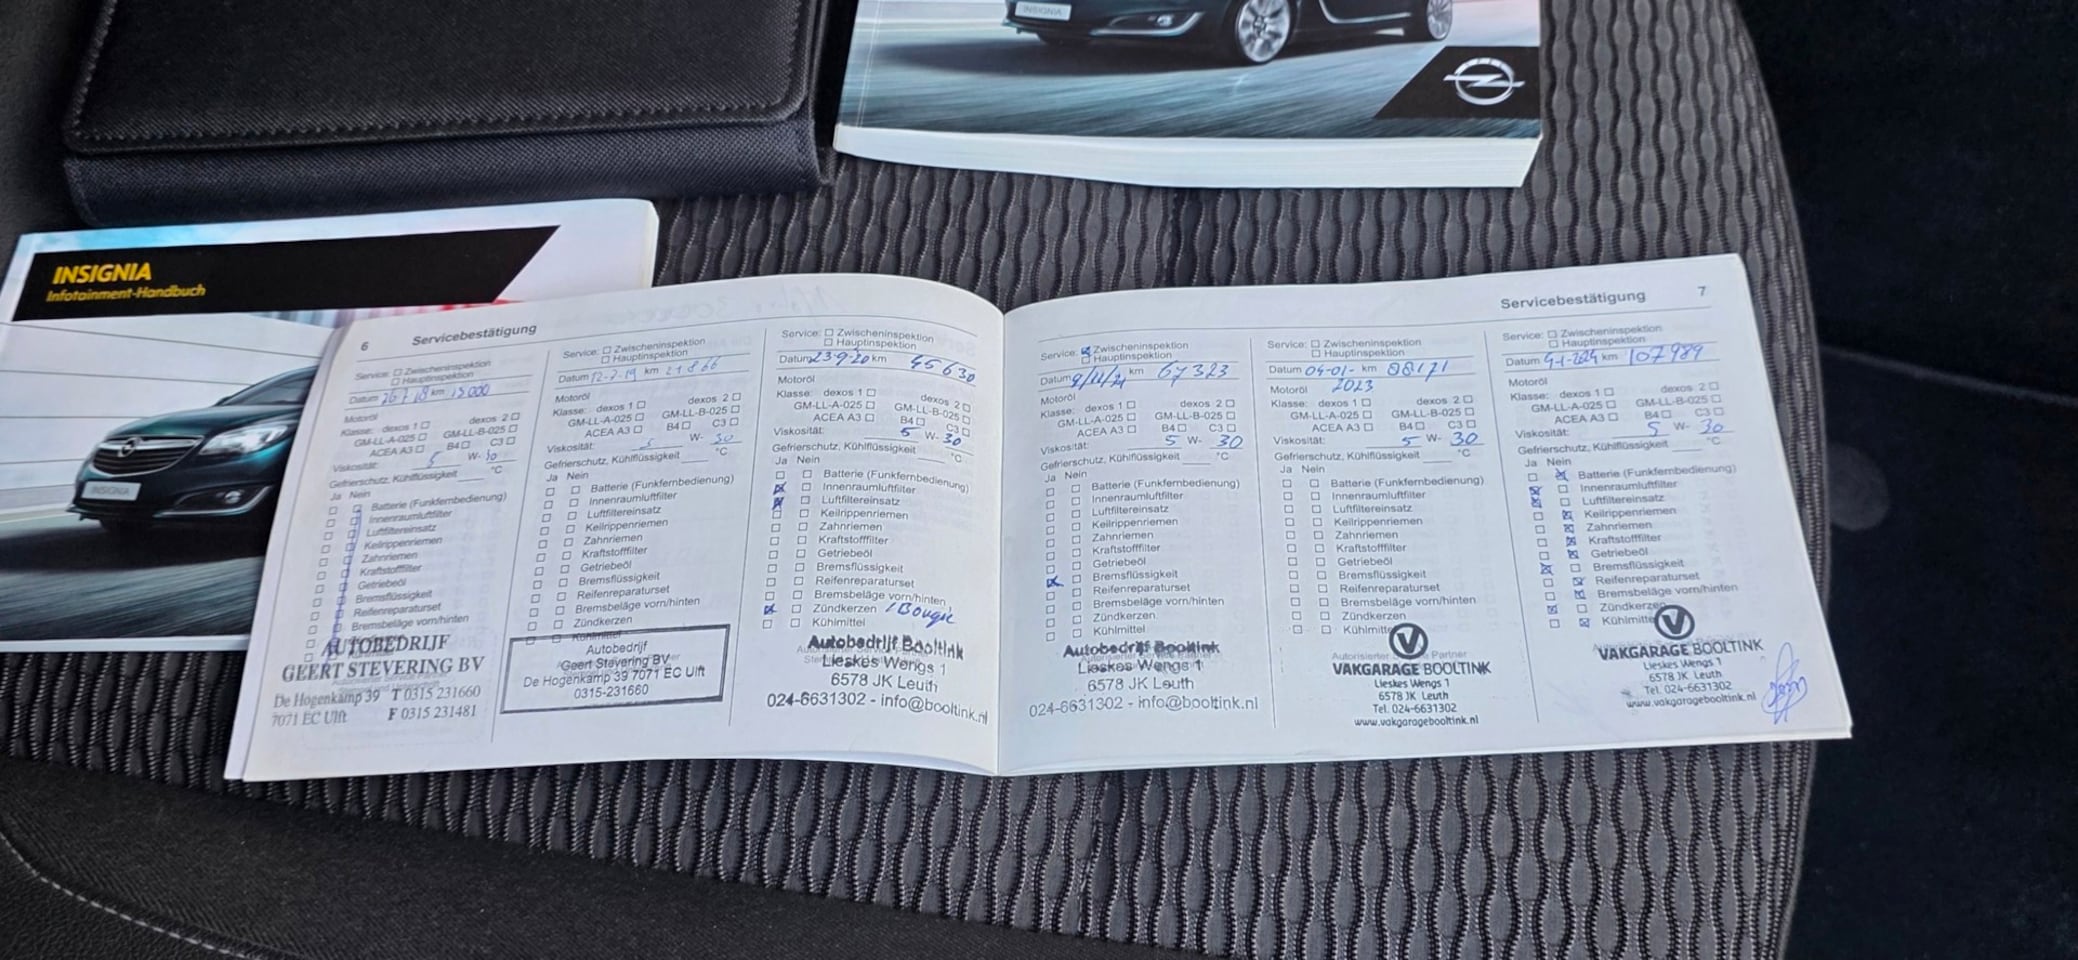 INSIGNIA
INSIGNIA
Infotainment-Handbuch
INSIGNIA
6
Servicebestätigung
Service: ☐ Zwischeninspektion
☐ Hauptinspektion
Datum 18 km 15000
Motoröl
Klasse: dexos 1 ☐ dexos 2 ☐
GM-LL-A-025 ☐ GM-LL-B-025 ☐
ACEA A3 ☐ B4 ☐ C3 ☐
Viskosität: 5 W- 30
Gefrierschutz, Kühlflüssigkeit °C
Ja Nein
☐ ☐ Batterie (Funkfernbedienung)
☐ ☐ Innenraumluftfilter
☐ ☐ Luftfiltereinsatz
☐ ☐ Keilrippenriemen
☐ ☐ Zahnriemen
☐ ☐ Kraftstofffilter
☐ ☐ Getriebeöl
☐ ☐ Bremsflüssigkeit
☐ ☐ Reifenreparaturset
☐ ☐ Bremsbeläge vorn/hinten
AUTOBEDRIJF
GEERT STEVERING BV
De Hogenkamp 39 T 0315 231660
7071 EC Ulft F 0315 231481
Service: ☐ Zwischeninspektion
☐ Hauptinspektion
Datum 12-7-19 km 21866
Motoröl
Klasse: dexos 1 ☐ dexos 2 ☐
GM-LL-A-025 ☐ GM-LL-B-025 ☐
ACEA A3 ☐ B4 ☐ C3 ☐
Viskosität: 5 W- 30
Gefrierschutz, Kühlflüssigkeit °C
Ja Nein
☐ ☐ Batterie (Funkfernbedienung)
☐ ☐ Innenraumluftfilter
☐ ☐ Luftfiltereinsatz
☐ ☐ Keilrippenriemen
☐ ☐ Zahnriemen
☐ ☐ Kraftstofffilter
☐ ☐ Getriebeöl
☐ ☐ Bremsflüssigkeit
☐ ☐ Reifenreparaturset
☐ ☐ Bremsbeläge vorn/hinten
☐ ☐ Zündkerzen
☐ ☐ Kühlmittel
Autobedrijf
Geert Stevering BV
De Hogenkamp 39 7071 EC Ulft
0315-231660
Service: ☐ Zwischeninspektion
☐ Hauptinspektion
Datum 23-9-20 km 45630
Motoröl
Klasse: dexos 1 ☐ dexos 2 ☐
GM-LL-A-025 ☐ GM-LL-B-025 ☐
ACEA A3 ☐ B4 ☐ C3 ☐
Viskosität: 5 W- 30
Gefrierschutz, Kühlflüssigkeit °C
Ja Nein
☐ ☐ Batterie (Funkfernbedienung)
☒ ☐ Innenraumluftfilter
☒ ☐ Luftfiltereinsatz
☐ ☐ Keilrippenriemen
☐ ☐ Zahnriemen
☐ ☐ Kraftstofffilter
☐ ☐ Getriebeöl
☐ ☐ Bremsflüssigkeit
☐ ☐ Reifenreparaturset
☐ ☐ Bremsbeläge vorn/hinten
☒ ☐ Zündkerzen / Bougie
☐ ☐ Kühlmittel
Autobedrijf Booltink
Lieskes Wengs 1
6578 JK Leuth
024-6631302 - info@booltink.nl
Servicebestätigung
7
Service: ☒ Zwischeninspektion
☐ Hauptinspektion
Datum km 67323
Motoröl
Klasse: dexos 1 ☐ dexos 2 ☐
GM-LL-A-025 ☐ GM-LL-B-025 ☐
ACEA A3 ☐ B4 ☐ C3 ☐
Viskosität: 5 W- 30
Gefrierschutz, Kühlflüssigkeit °C
Ja Nein
☐ ☐ Batterie (Funkfernbedienung)
☐ ☐ Innenraumluftfilter
☐ ☐ Luftfiltereinsatz
☐ ☐ Keilrippenriemen
☐ ☐ Zahnriemen
☐ ☐ Kraftstofffilter
☐ ☐ Getriebeöl
☒ ☐ Bremsflüssigkeit
☐ ☐ Reifenreparaturset
☐ ☐ Bremsbeläge vorn/hinten
☐ ☐ Zündkerzen
☐ ☐ Kühlmittel
Autobedrijf Booltink
Lieskes Wengs 1
6578 JK Leuth
024-6631302 - info@booltink.nl
Service: ☐ Zwischeninspektion
☐ Hauptinspektion
Datum 04-01- km 88171
Motoröl 2023
Klasse: dexos 1 ☐ dexos 2 ☐
GM-LL-A-025 ☐ GM-LL-B-025 ☐
ACEA A3 ☐ B4 ☐ C3 ☐
Viskosität: 5 W- 30
Gefrierschutz, Kühlflüssigkeit °C
Ja Nein
☐ ☐ Batterie (Funkfernbedienung)
☐ ☐ Innenraumluftfilter
☐ ☐ Luftfiltereinsatz
☐ ☐ Keilrippenriemen
☐ ☐ Zahnriemen
☐ ☐ Kraftstofffilter
☐ ☐ Getriebeöl
☐ ☐ Bremsflüssigkeit
☐ ☐ Reifenreparaturset
☐ ☐ Bremsbeläge vorn/hinten
☐ ☐ Zündkerzen
☐ ☐ Kühlmittel
Autorisierter Partner
VAKGARAGE BOOLTINK
Lieskes Wengs 1
6578 JK Leuth
Tel. 024-6631302
www.vakgaragebooltink.nl
Service: ☐ Zwischeninspektion
☐ Hauptinspektion
Datum 4-1-2024 km 107989
Motoröl
Klasse: dexos 1 ☐ dexos 2 ☐
GM-LL-A-025 ☐ GM-LL-B-025 ☐
ACEA A3 ☐ B4 ☐ C3 ☐
Viskosität: 5 W- 30
Gefrierschutz, Kühlflüssigkeit °C
Ja Nein
☐ ☒ Batterie (Funkfernbedienung)
☒ ☐ Innenraumluftfilter
☒ ☐ Luftfiltereinsatz
☐ ☒ Keilrippenriemen
☐ ☒ Zahnriemen
☐ ☒ Kraftstofffilter
☐ ☒ Getriebeöl
☒ ☐ Bremsflüssigkeit
☐ ☒ Reifenreparaturset
☐ ☒ Bremsbeläge vorn/hinten
☒ ☐ Zündkerzen
☐ ☒ Kühlmittel
VAKGARAGE BOOLTINK
Lieskes Wengs 1
6578 JK Leuth
Tel. 024-6631302
www.vakgaragebooltink.nl